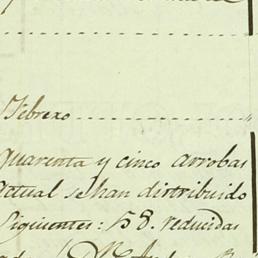 Febrero
Quarenta y cinco arrobas
actual se han distribuido
Siguientes: 158. reducidas